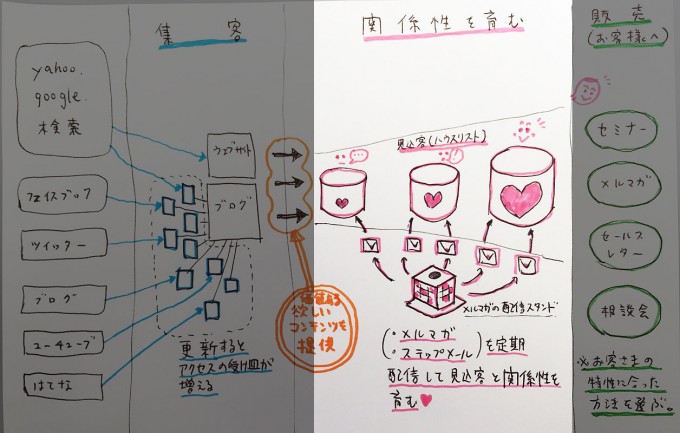 集客
関係性を育む
販売
(お客様へ)
yahoo.
google.
検索
フェイスブック
ツイッター
ブログ
ユーチューブ
はてな
ウェブサイト
ブログ
更新すると
アクセスの受け皿が
増える
価値ある
欲しい
コンテンツを
提供
見込客(ハウスリスト)
メルマガの配信スタンド
(・メルマガ
・ステップメール)を定期
配信して見込客と関係性を
育む
セミナー
メルマガ
セールス
レター
相談会
※お客さまの
特性に合った
方法を選ぶ。